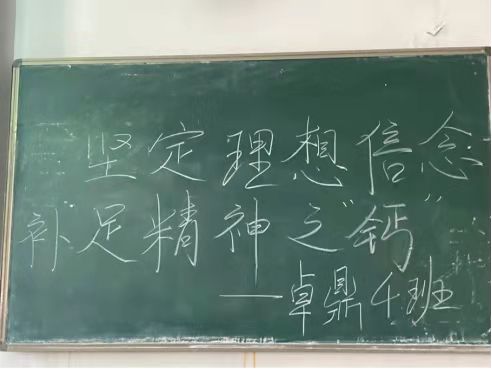 坚定理想信念
补足精神之"钙"
——卓鼎4班